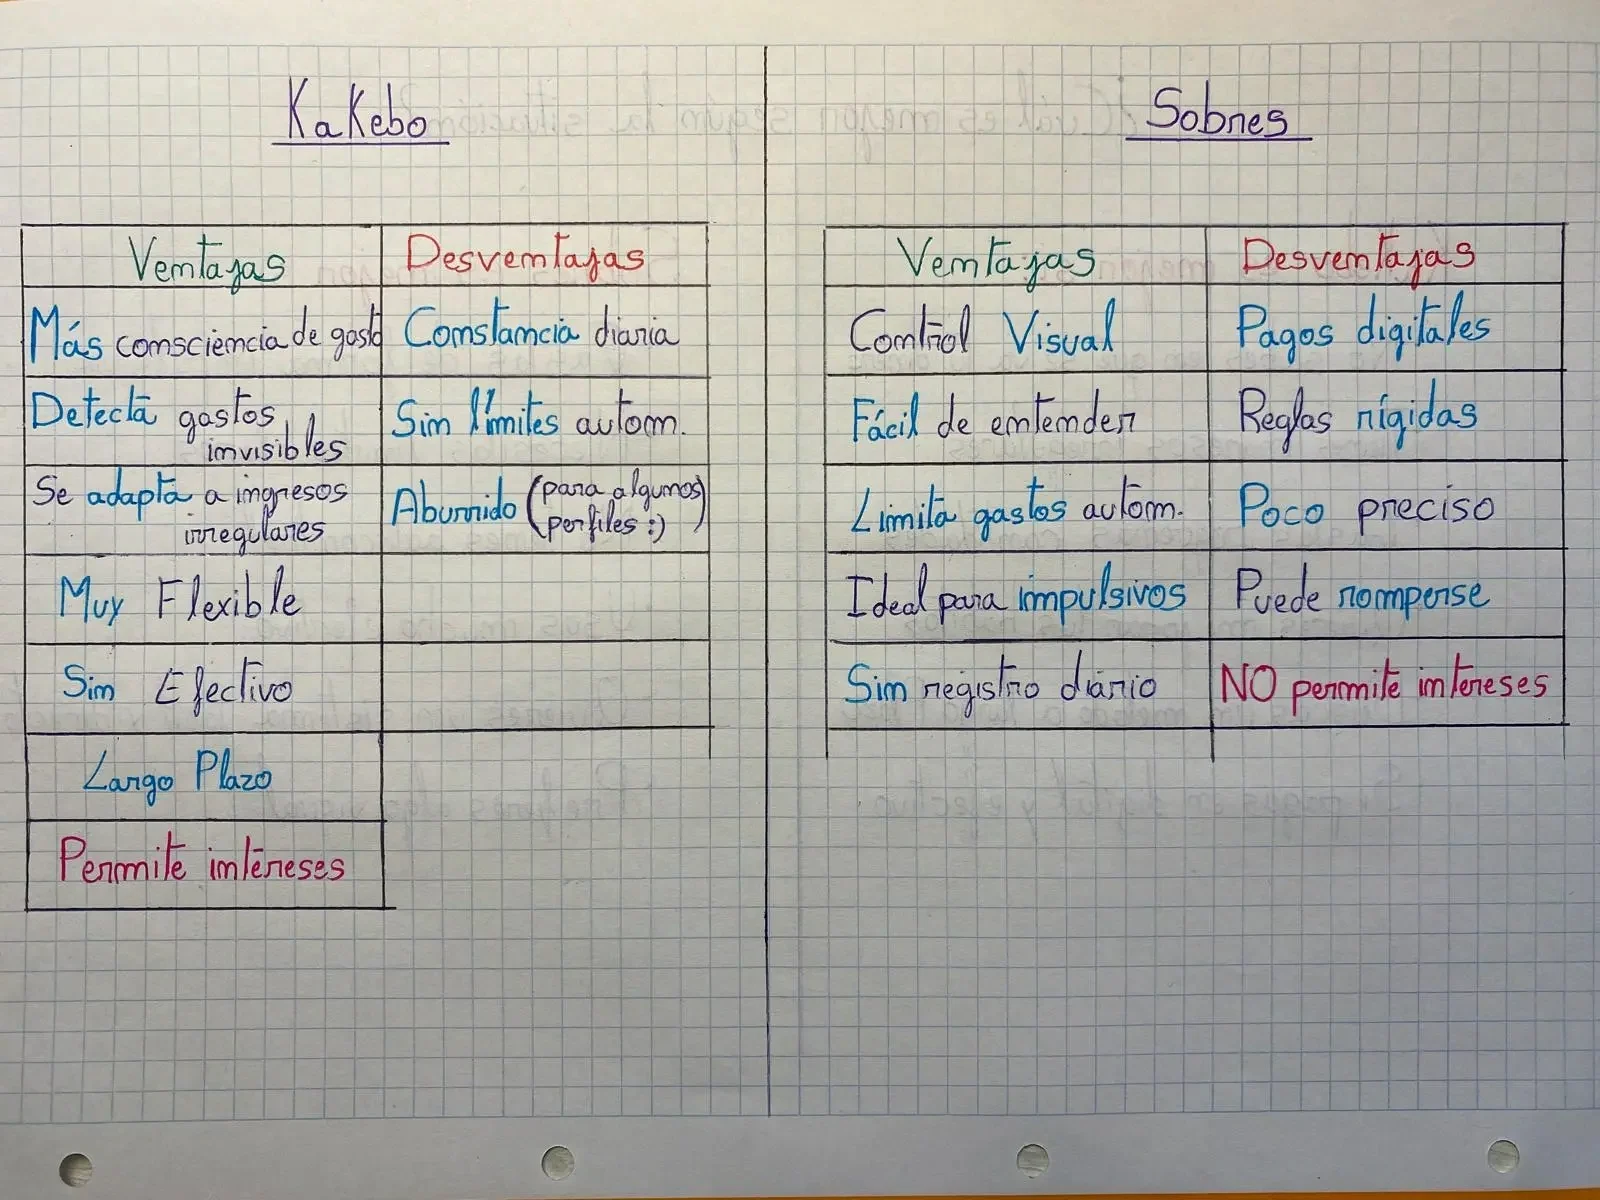 Kakebo
Ventajas
Desventajas
Más consciencia de gasto
Constancia diaria
Detecta gastos
invisibles
Sin límites autom.
Se adapta a ingresos
irregulares
Aburrido (para algunos
perfiles :)
Muy Flexible
Sin Efectivo
Largo Plazo
Permite intereses
Sobres
Ventajas
Desventajas
Control Visual
Pagos digitales
Fácil de entender
Reglas rígidas
Limita gastos autom.
Poco preciso
Ideal para impulsivos
Puede romperse
Sin registro diário
NO permite intereses